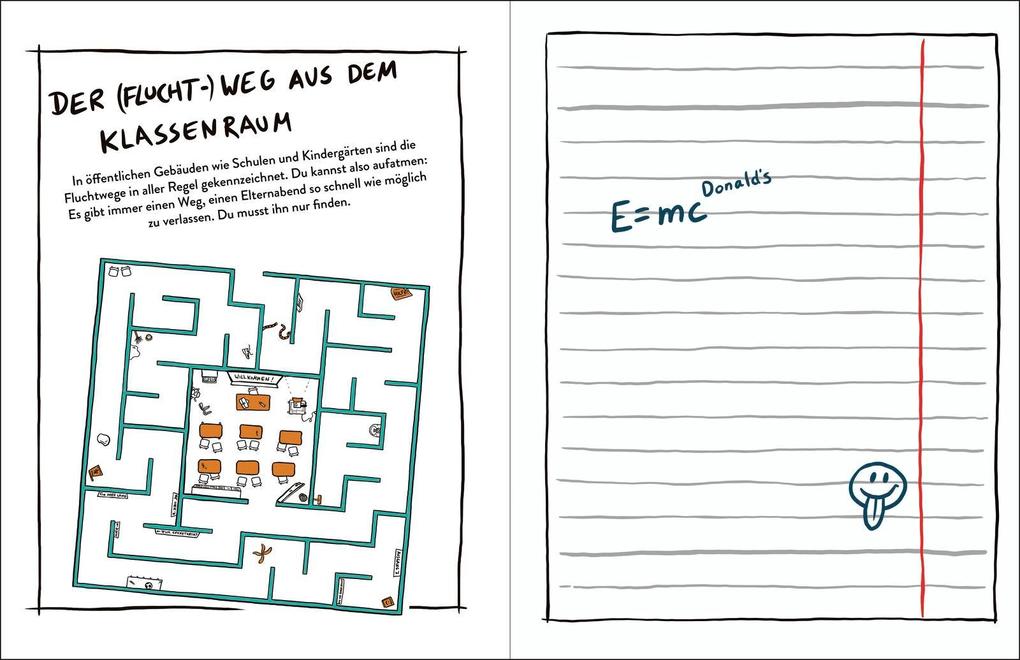 DER (FLUCHT-) WEG AUS DEM
KLASSENRAUM
In öffentlichen Gebäuden wie Schulen und Kindergärten sind die
Fluchtwege in aller Regel gekennzeichnet. Du kannst also aufatmen:
Es gibt immer einen Weg, einen Elternabend so schnell wie möglich
zu verlassen. Du musst ihn nur finden.
WILLKOMMEN!
E=mc Donald's